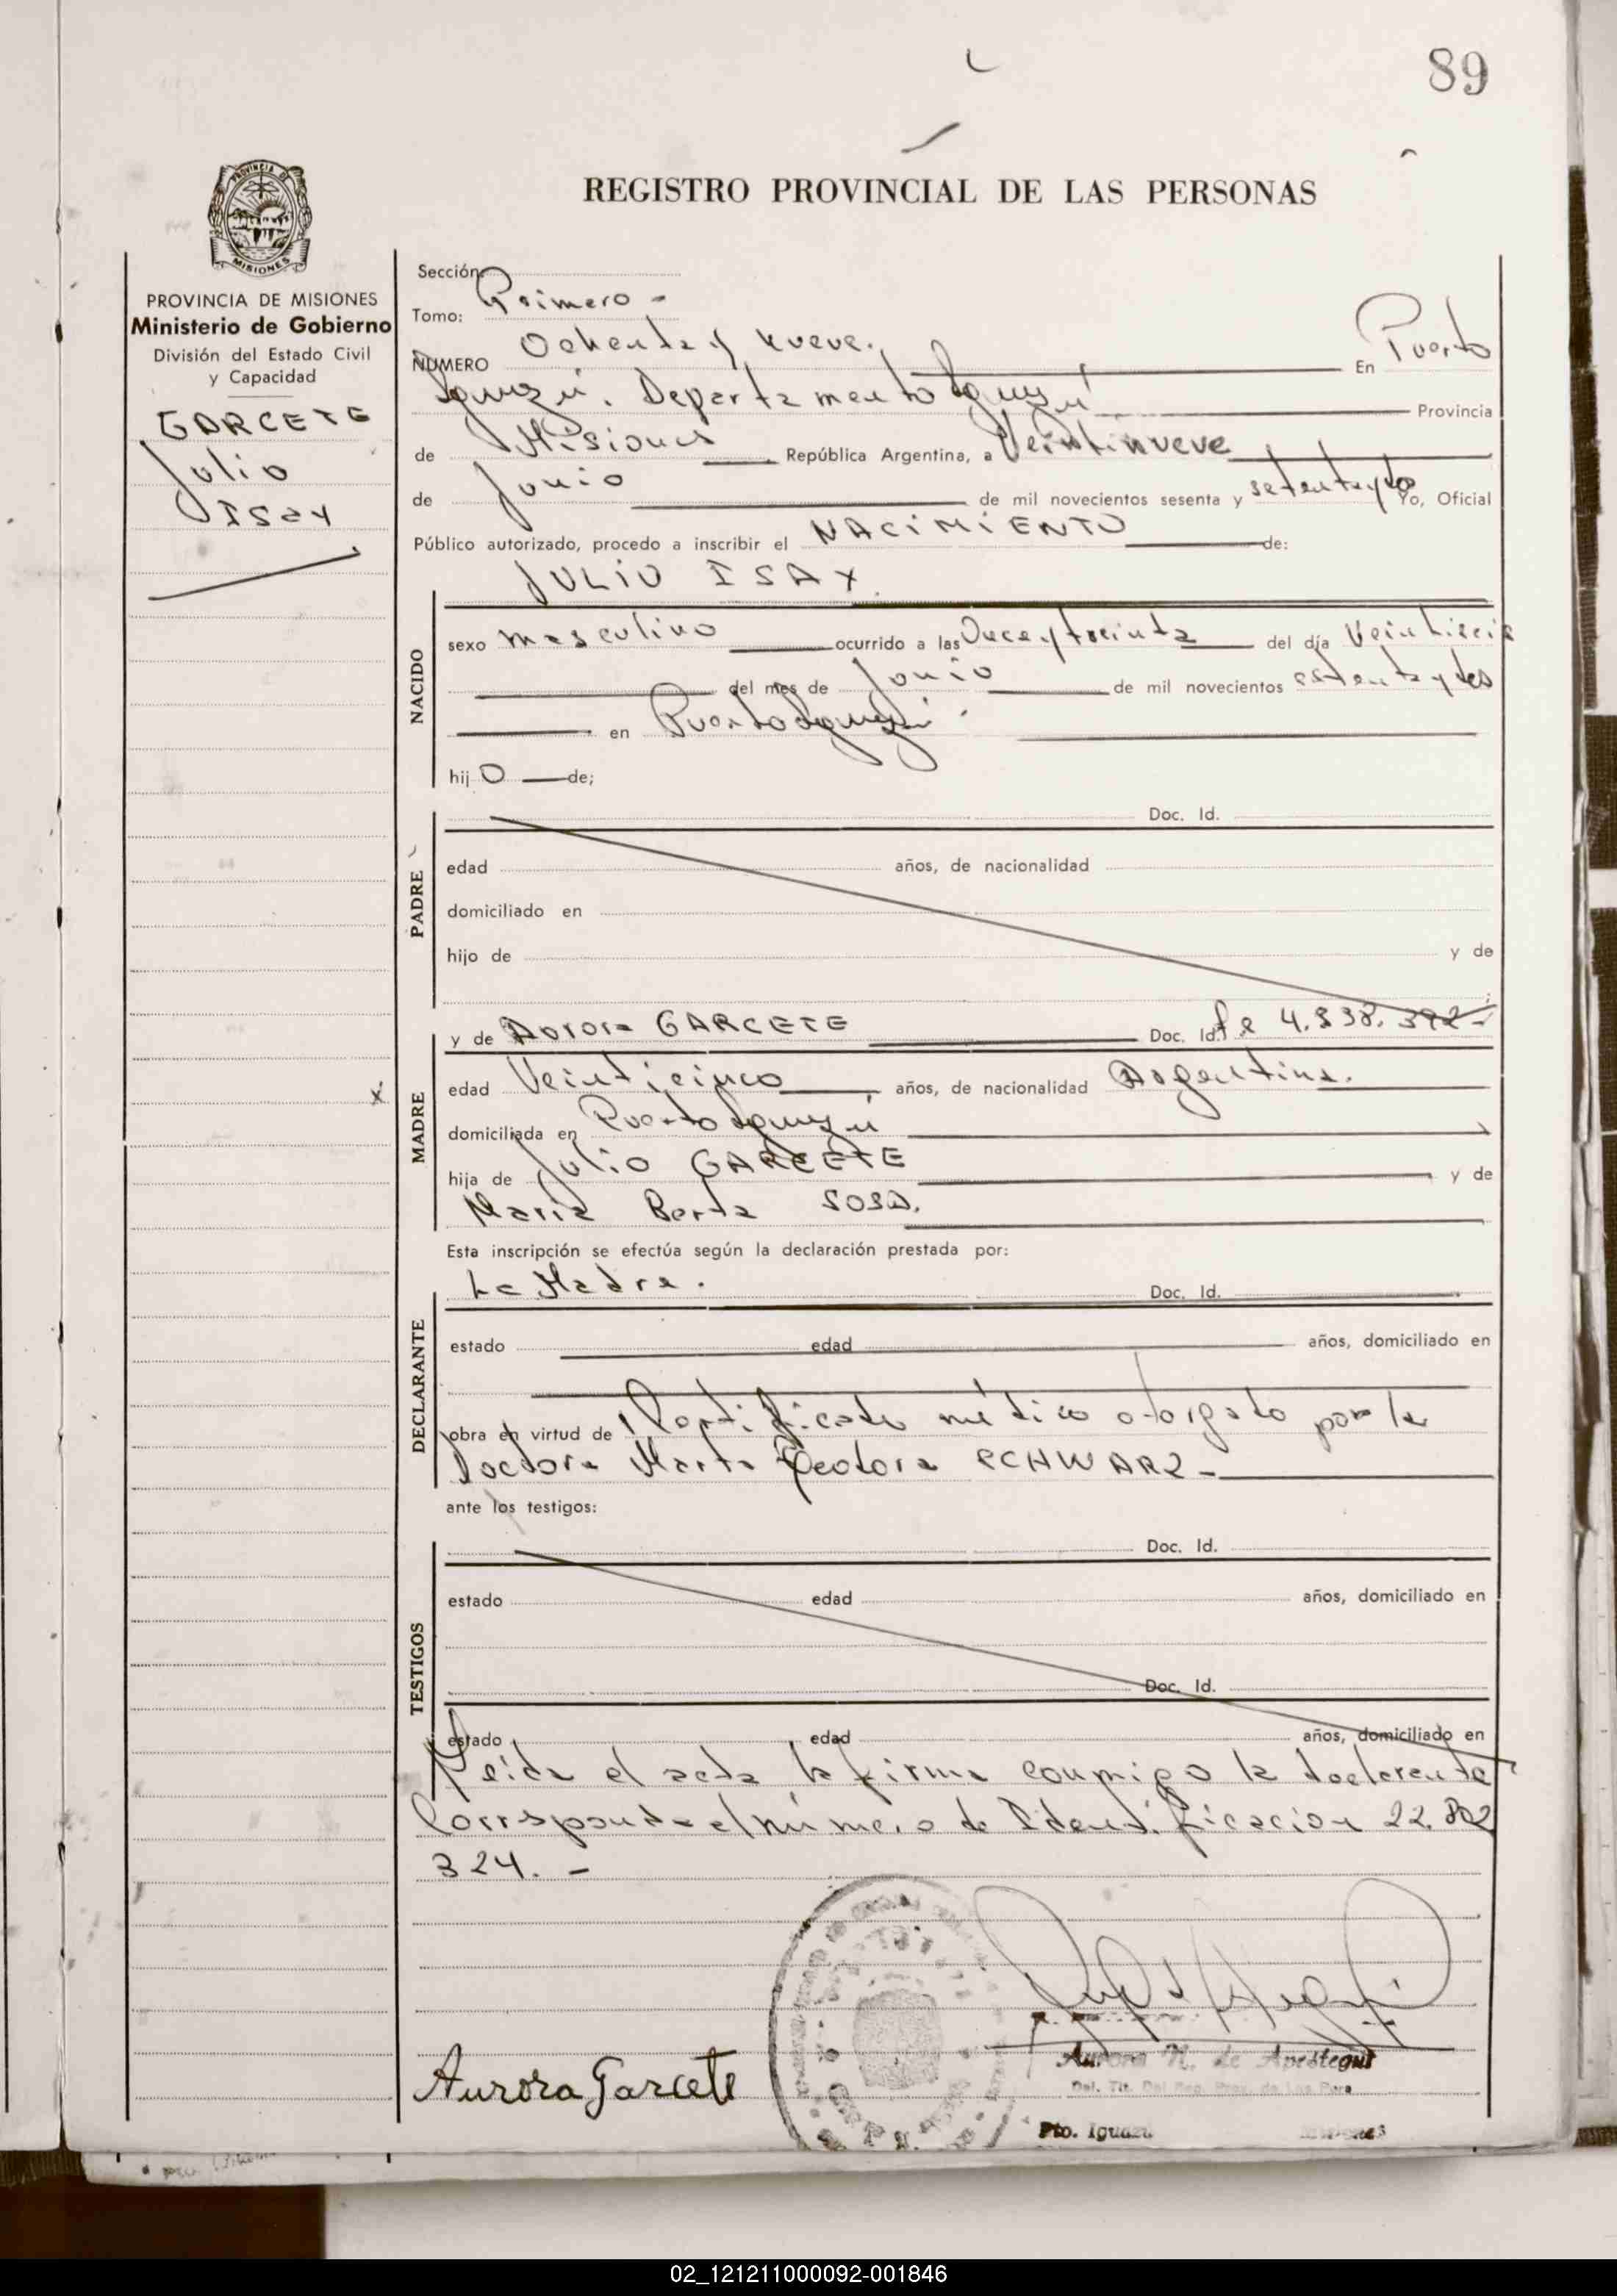 89
REGISTRO PROVINCIAL DE LAS PERSONAS
PROVINCIA DE MISIONES
MISIONES
PROVINCIA DE MISIONES
Ministerio de Gobierno
División del Estado Civil
y Capacidad
GARCETE
Julio
ISay
Sección
Tomo: Primero -
NUMERO Ochenta y nueve. En Puerto
Iguazú. Departamento Iguazú Provincia
de Misiones República Argentina, a Veintinueve
de Junio de mil novecientos sesenta y setenta y dos Yo, Oficial
Público autorizado, procedo a inscribir el NACIMIENTO de:
JULIO ISAY
NACIDO
sexo masculino ocurrido a las Once y treinta del día Veintiseis
del mes de Junio de mil novecientos setenta y dos
en Puerto Iguazú.
hij o de;
PADRE
Doc. Id.
edad años, de nacionalidad
domiciliado en
hijo de y de
;
MADRE
y de Aurora GARCETE Doc. Id. 4.838.392-
edad Veinticinco años, de nacionalidad Argentina.
domiciliada en Puerto Iguazú
hija de Julio GARCETE y de
Maria Berta SOSA.
Esta inscripción se efectúa según la declaración prestada por:
DECLARANTE
La Madre. Doc. Id.
estado edad años, domiciliado en
obra en virtud de Certificado médico otorgado por la
Doctora Marta Teodora SCHWARZ-
ante los testigos:
TESTIGOS
Doc. Id.
estado edad años, domiciliado en
Doc. Id.
estado edad años, domiciliado en
Leida el acta la firma conmigo la declarante
Corresponde el número de Identificacion 22.802
324. -
Aurora Garcete
Aurora N. de Apestegui
Del. Tit. Del Reg. Prov. de Las Pers
Pto. Iguazú Misiones
02_121211000092-001846